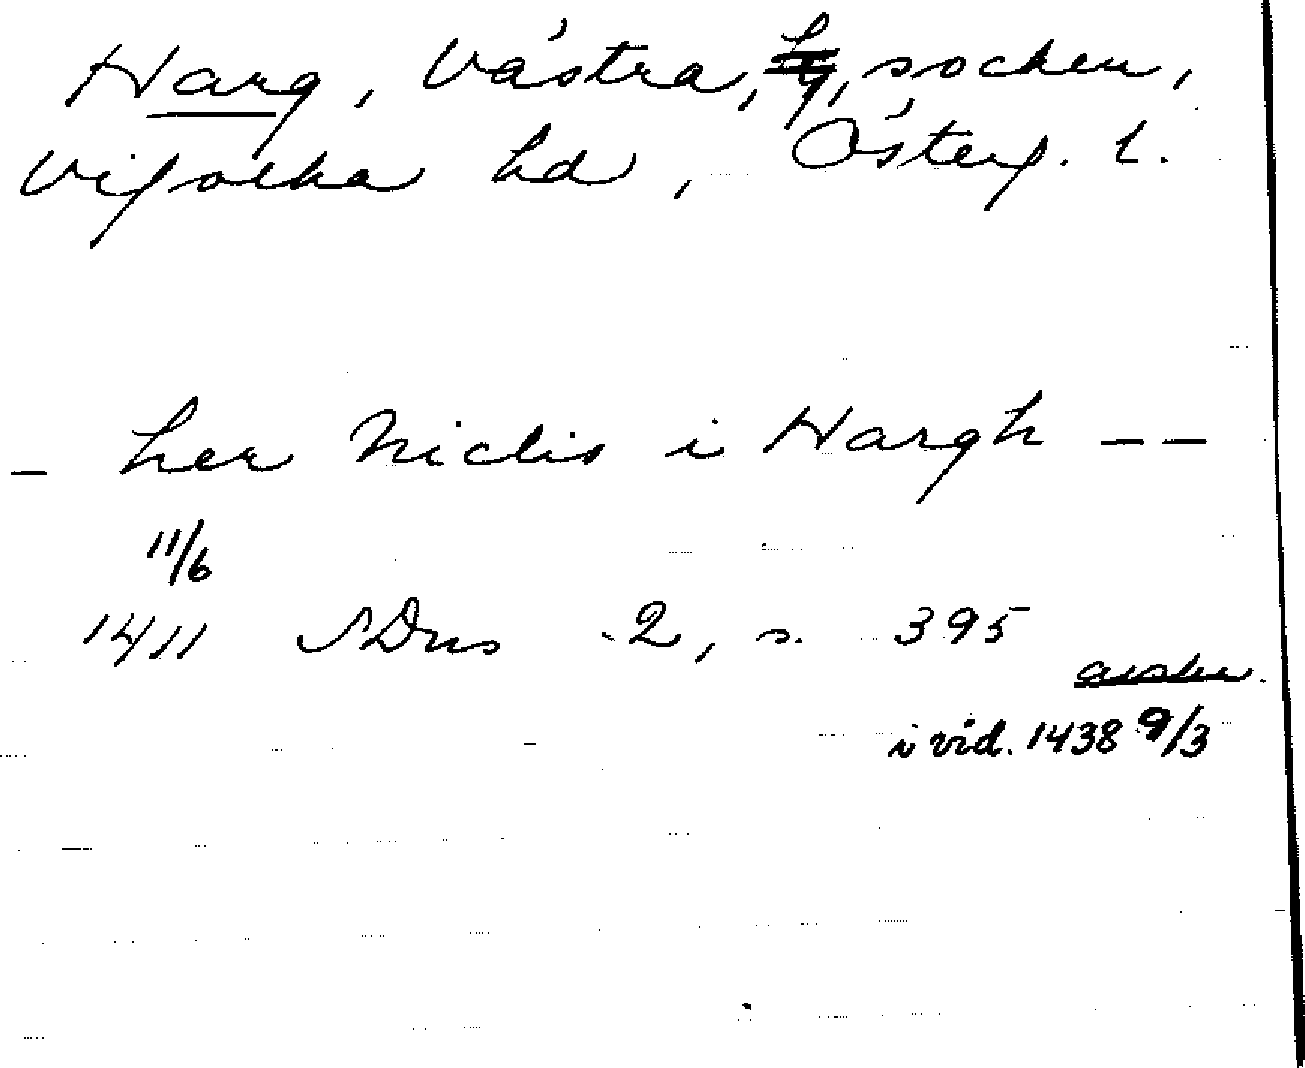 Harg, Västra, socken,
Vifolka hd, Österg. l.
– her Niclis i Hargh – –
11/6
1411 SDns 2, s. 395
avskr.
i vid. 1438 9/3